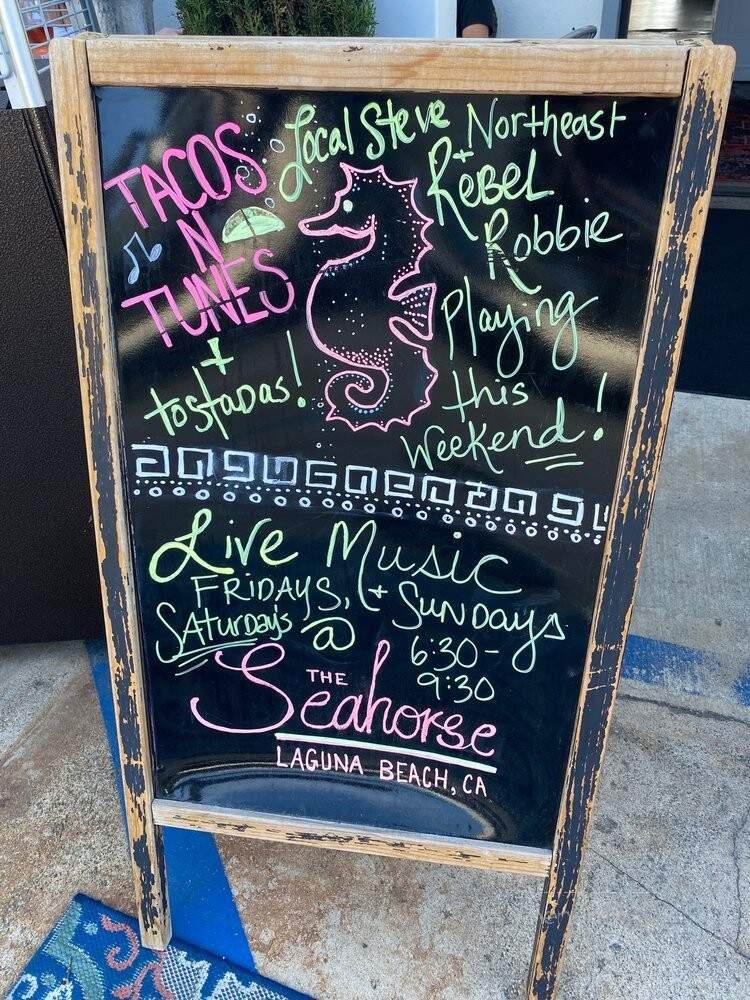 TACOS
N
TUNES
+
tostadas!
Local Steve Northeast
+ Rebel
Robbie
Playing
this
weekend!
Live Music
FRIDAYS, + SUNDAYS
SAturDay's @ 6:30-
9:30
THE
Seahorse
LAGUNA BEACH, CA